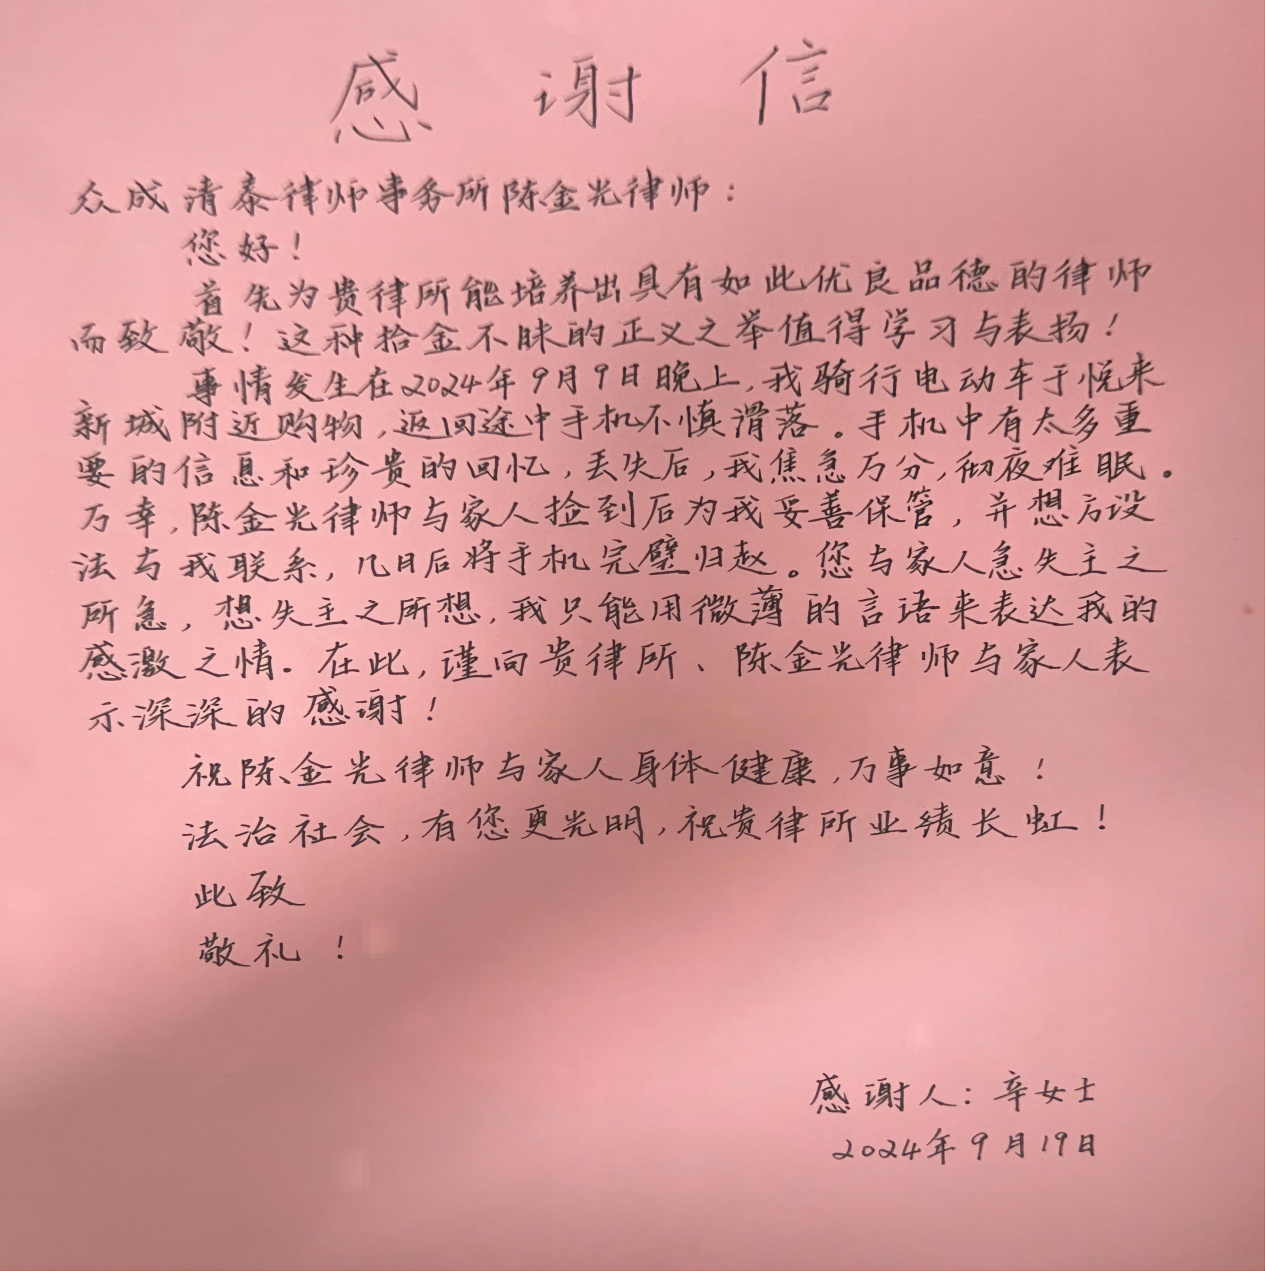 感谢信
众成清泰律师事务所陈金光律师：
您好！
首先为贵律所能培养出具有如此优良品德的律师
而致敬！这种拾金不昧的正义之举值得学习与表扬！
事情发生在2024年9月9日晚上，我骑行电动车于悦来
新城附近购物，返回途中手机不慎滑落。手机中有太多重
要的信息和珍贵的回忆，丢失后，我焦急万分，彻夜难眠。
万幸，陈金光律师与家人捡到后为我妥善保管，并想方设
法与我联系，几日后将手机完璧归赵。您与家人急失主之
所急，想失主之所想，我只能用微薄的言语来表达我的
感激之情。在此，谨向贵律所、陈金光律师与家人表
示深深的感谢！
祝陈金光律师与家人身体健康，万事如意！
法治社会，有您更光明，祝贵律所业绩长虹！
此致
敬礼！
感谢人：辛女士
2024年9月19日